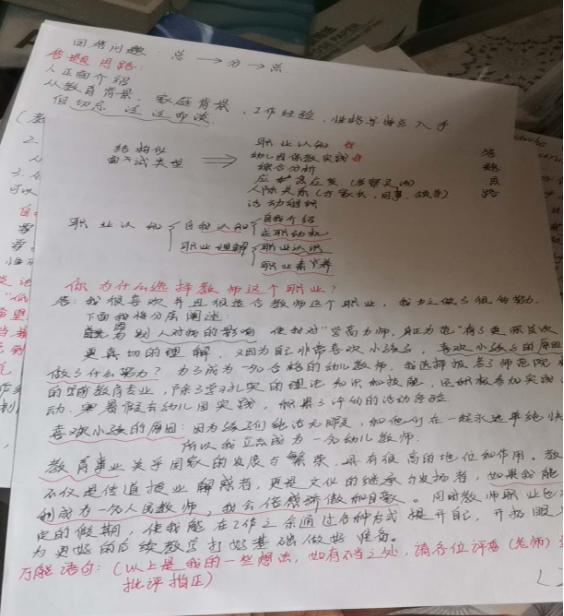 回答问题：总 → 分 → 总
答题思路：
从教育背景、家庭背景、工作经验、性格等特点入手
但切忌
结构化 面试类型 ⇒
职业认知
幼儿园保教实践
综合分析
应变
人际关系
活动组织
答 题 思 路
职业认知 自我认知 自我介绍
求职动机
职业理解 职业认识
职业素养
你为什么选择教师这个职业？
答：我很喜欢并且很适合教师这个职业，我为之做了很多努力。
下面我将分层阐述：
别人对我的影响 使我对“学高为师，身正为范”有了更深层次
更真切的理解，又因为自己非常喜欢小孩子，喜欢小孩子的原因
做了什么努力？为了成为一名合格的幼儿教师，我选择报考了师范院
的学前教育专业，除了学习扎实的理论知识和技能，还积极参加实践
动，寒暑假去幼儿园实践，积累了
喜欢小孩的原因：因为孩子们纯洁无暇，和他们在一起永远单纯快
所以我立志成为一名幼儿教师。
教育事业关乎国家的发展与繁荣，具有很高的地位和作用。教
不仅是传道授业解惑者，更是文化的继承与发扬者，如果我能
利成为一名人民教师，我会倍感骄傲和自豪。同时教师职业
的假期，使我能在工作之余通过各种方式提升自己，开拓眼
为更好的后续教学打好基础做好准备。
万能语句：（以上是我的一些想法，如有不当之处，请各位评委（老师）
批评指正）